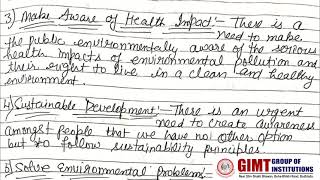 3) Make Aware of Health Impact :- There is a
need to make
the public environmentally aware of the serious
health impacts of environmental pollution and
their ought to live in a clean and healthy
environment.
4) Sustainable Development :- There is an urgent
need to create awareness
amongst people that we have no other option
but to follow sustainability principles.
5) Solve Environmental Problems
GIMT GROUP OF
INSTITUTIONS